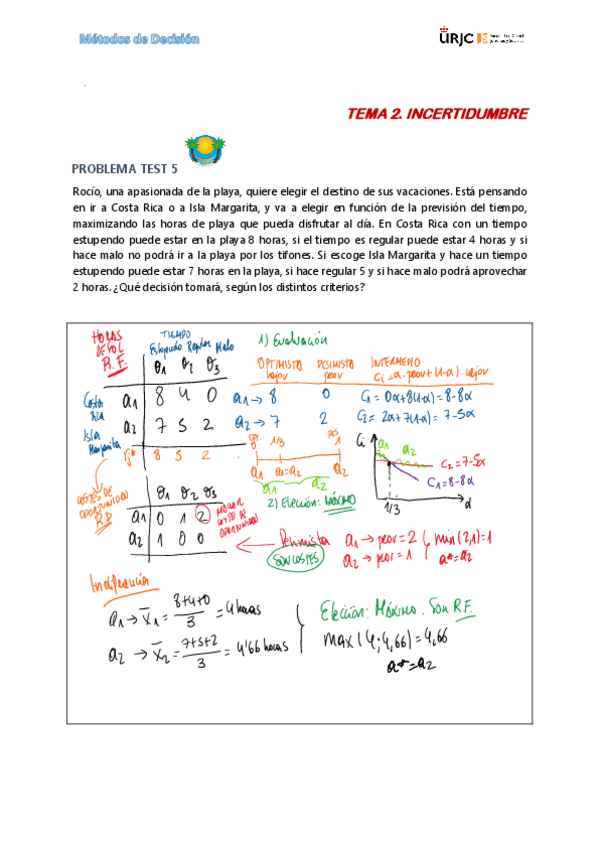 Métodos de Decisión
URJC
TEMA 2. INCERTIDUMBRE
PROBLEMA TEST 5
Rocío, una apasionada de la playa, quiere elegir el destino de sus vacaciones. Está pensando
en ir a Costa Rica o a Isla Margarita, y va a elegir en función de la previsión del tiempo,
maximizando las horas de playa que pueda disfrutar al día. En Costa Rica con un tiempo
estupendo puede estar en la playa 8 horas, si el tiempo es regular puede estar 4 horas y si
hace malo no podrá ir a la playa por los tifones. Si escoge Isla Margarita y hace un tiempo
estupendo puede estar 7 horas en la playa, si hace regular 5 y si hace malo podrá aprovechar
2 horas. ¿Qué decisión tomará, según los distintos criterios?
HORAS DE SOL R.F.
TIEMPO
Estupendo Regular Malo
θ1 θ2 θ3
Costa Rica a1 8 4 0
Isla Margarita a2 7 5 2
rj* 8 5 2
1) Evaluación
OPTIMISTA mejor
PESIMISTA peor
INTERMEDIO
Ci = α·peor + (1-α)·mejor
a1 → 8 0 C1 = 0α+8(1-α) = 8-8α
a2 → 7 2 C2 = 2α+7(1-α) = 7-5α
opt. 0 1/3 pes. 1
a1 a1=a2 a2
a1 a2
2) Elección: MÁXIMO
Ci
a1 a2
C2=7-5α
C1=8-8α
1/3 α
COSTES DE OPORTUNIDAD
θ1 θ2 θ3
a1 0 1 2
a2 1 0 0
Pesimista
SON COSTES
a1 → peor = 2
a2 → peor = 1
min(2,1)=1
a*=a2
Indiferencia
a1 → x̄1 = 8+4+0 / 3 = 4 horas
a2 → x̄2 = 7+5+2 / 3 = 4'66 horas
Elección: Máximo. Son R.F.
max(4; 4,66) = 4,66
a*=a2